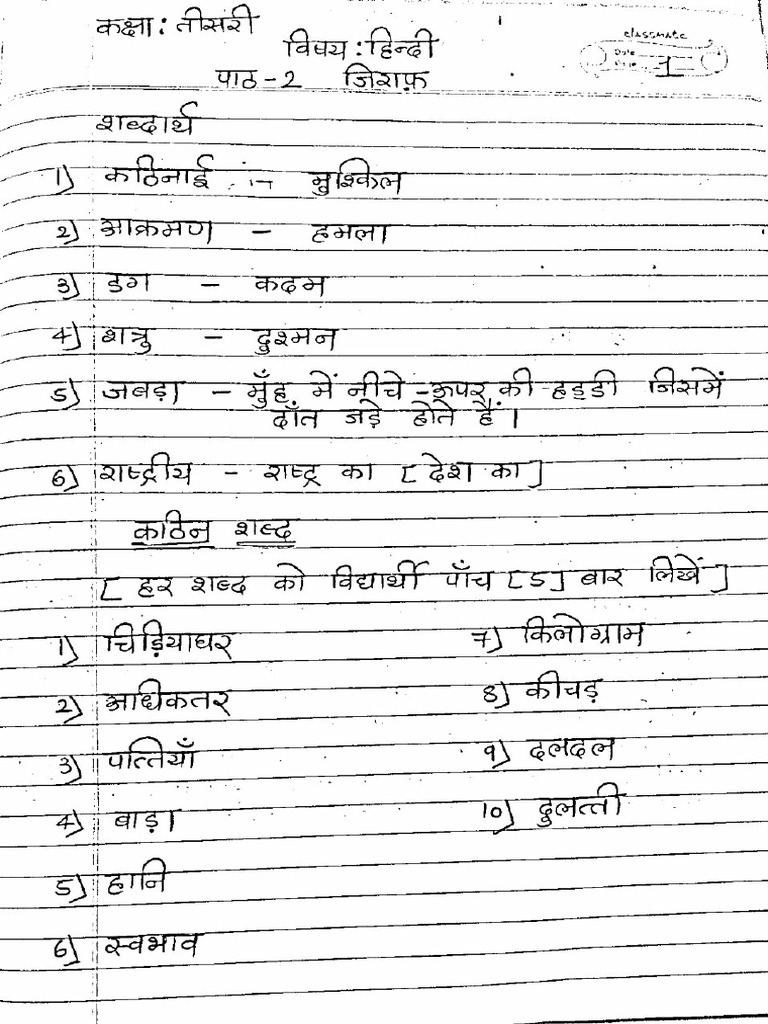 कक्षा: तीसरी
विषय: हिन्दी
classmate
Date
Page 1
पाठ-2 जिराफ़
शब्दार्थ
1) कठिनाई :- मुश्किल
2) आक्रमण - हमला
3) डग - कदम
4) शत्रु - दुश्मन
5) जबड़ा - मुँह में नीचे-ऊपर की हड्डी जिसमें
दाँत जड़े होते हैं।
6) राष्ट्रीय - राष्ट्र का [देश का]
कठिन शब्द
[हर शब्द को विद्यार्थी पाँच [5] बार लिखें]
1) चिड़ियाघर 7) किलोग्राम
2) अधिकतर 8) कीचड़
3) पत्तियाँ 9) दलदल
4) बाड़ा 10) दुलत्ती
5) हानि
6) स्वभाव